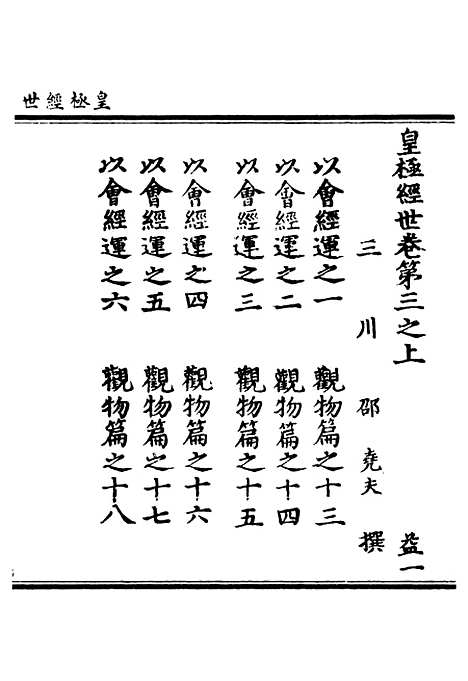 皇極經世
皇極經世卷第三之上 益一
三川 邵堯夫 撰
以會經運之一 觀物篇之十三
以會經運之二 觀物篇之十四
以會經運之三 觀物篇之十五
以會經運之四 觀物篇之十六
以會經運之五 觀物篇之十七
以會經運之六 觀物篇之十八